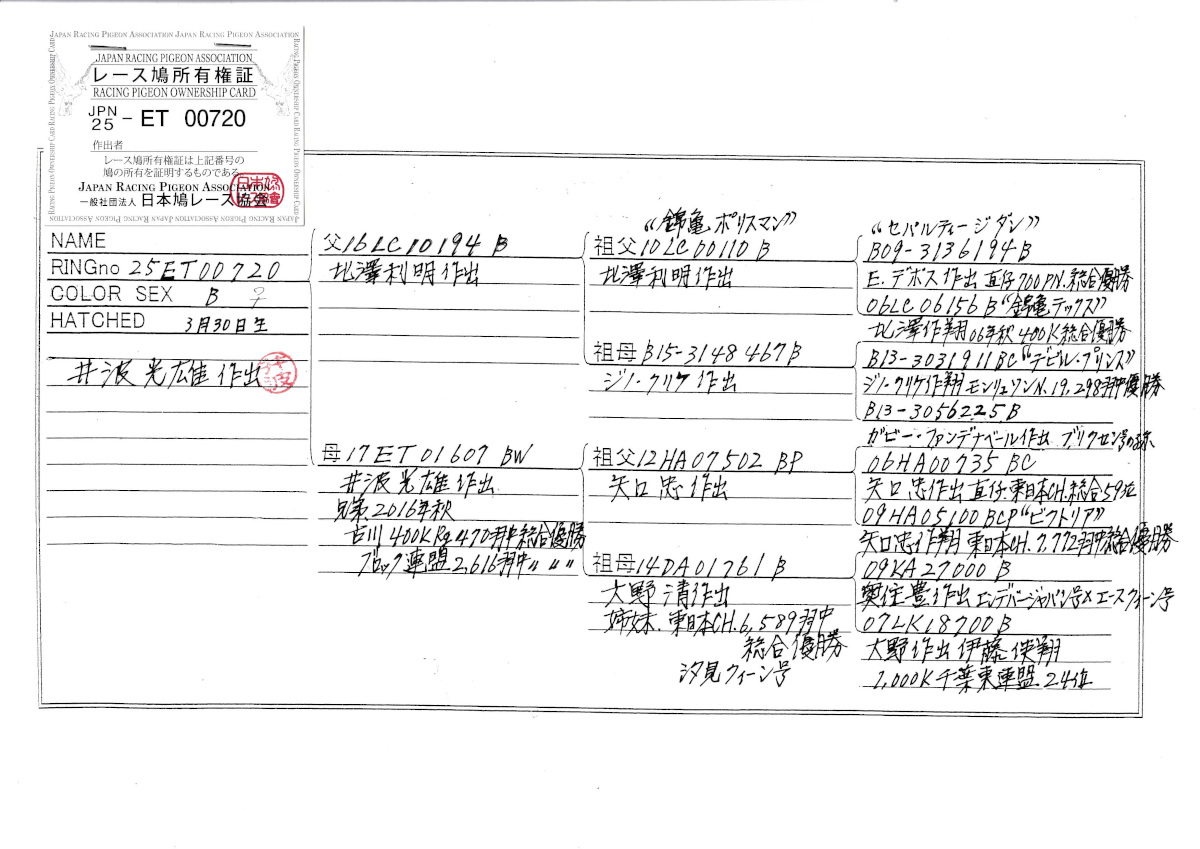 JAPAN RACING PIGEON ASSOCIATION JAPAN RACING PIGEON ASSOCIATION
JAPAN RACING PIGEON ASSOCIATION
レース鳩所有権証
RACING PIGEON OWNERSHIP CARD
JPN
25 - ET 00720
作出者
レース鳩所有権証は上記番号の
鳩の所有を証明するものである。
JAPAN RACING PIGEON ASSOCIATION
一般社団法人 日本鳩レース協会
NAME
RINGno 25ET00720
COLOR SEX B ♀
HATCHED 3月30日生
井波光雄 作出
父16LC10194 B
北澤利明作出
母17ET01607 BW
井波光雄作出
兄弟2016年秋
古川400KRg470羽中総合優勝
ブロック連盟2,616羽中〃〃〃
"錦亀ポリスマン"
祖父10LC00110 B
北澤利明作出
祖母B15-3148467B
ジノ・クリケ作出
祖父12HA07502 BP
矢口忠作出
祖母14DA01761 B
大野清作出
姉妹、東日本CH.6,589羽中
総合優勝
汐見クィーン号
"セパルティージダン"
B09-3136194B
E.デボス作出 直仔700PN.総合優勝
06LC06156B"錦亀テックス"
北澤作翔06年秋400K総合優勝
B13-3031911BC"デビル・プリンス"
ジノ・クリケ作翔モンリュソンN.19,298羽中優勝
B13-3056225B
ガビー・ファンデナベール作出
06HA00735 BC
矢口忠作出直仔東日本CH.総合59位
09HA05100BCP"ビクトリア"
矢口忠作翔 東日本CH.7,772羽中総合優勝
09KA27000 B
奥住豊作出エンデバージャパン号×エースクィーン号
07LK18700B
大野作出伊藤俠翔
1,000K千葉東連盟24位